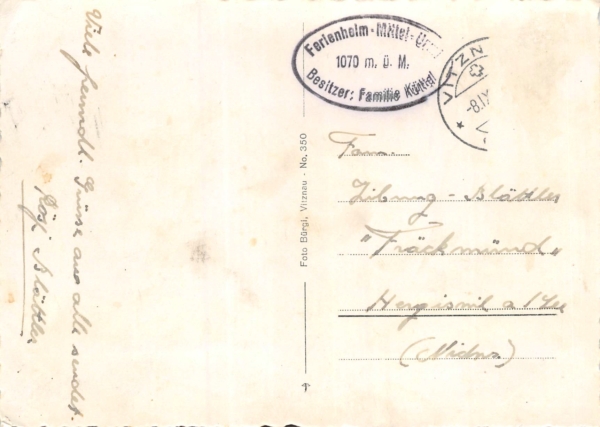 Viele freundl. Grüsse an alle sendet.
Rösi Blättler
Ferienheim - Mittel-
1070 m. ü. M.
Besitzer: Familie Küttel
VITZN
-8.IX
V-
Foto Bürgi, Vitznau - No. 350
Fam.
Zibung - Blättler
"Fräckmünd"
Hergiswil a / See
(Nidw)